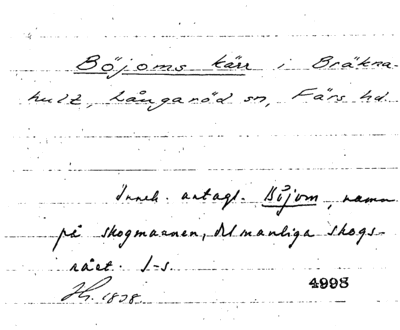 Böjoms kärr i Bräkna-
hult, Långaröd sn, Färs hd.
Inneh. antagl. Böjom, namn
på skogmannen, det manliga skogs-
rået. J-s.
Hr. 1838.
4998